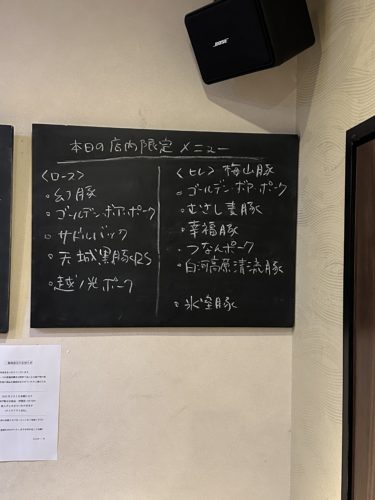 BOSE
本日の店内限定メニュー
〈ロース〉
・幻豚
・ゴールデン・ボア・ポーク
・サドルバック
・天城黒豚RS
・越ノ光ポーク
〈ヒレ〉 梅山豚
・ゴールデン・ボア・ポーク
・むさし麦豚
・幸福豚
・つなんポーク
・白河高原清流豚
・氷室豚